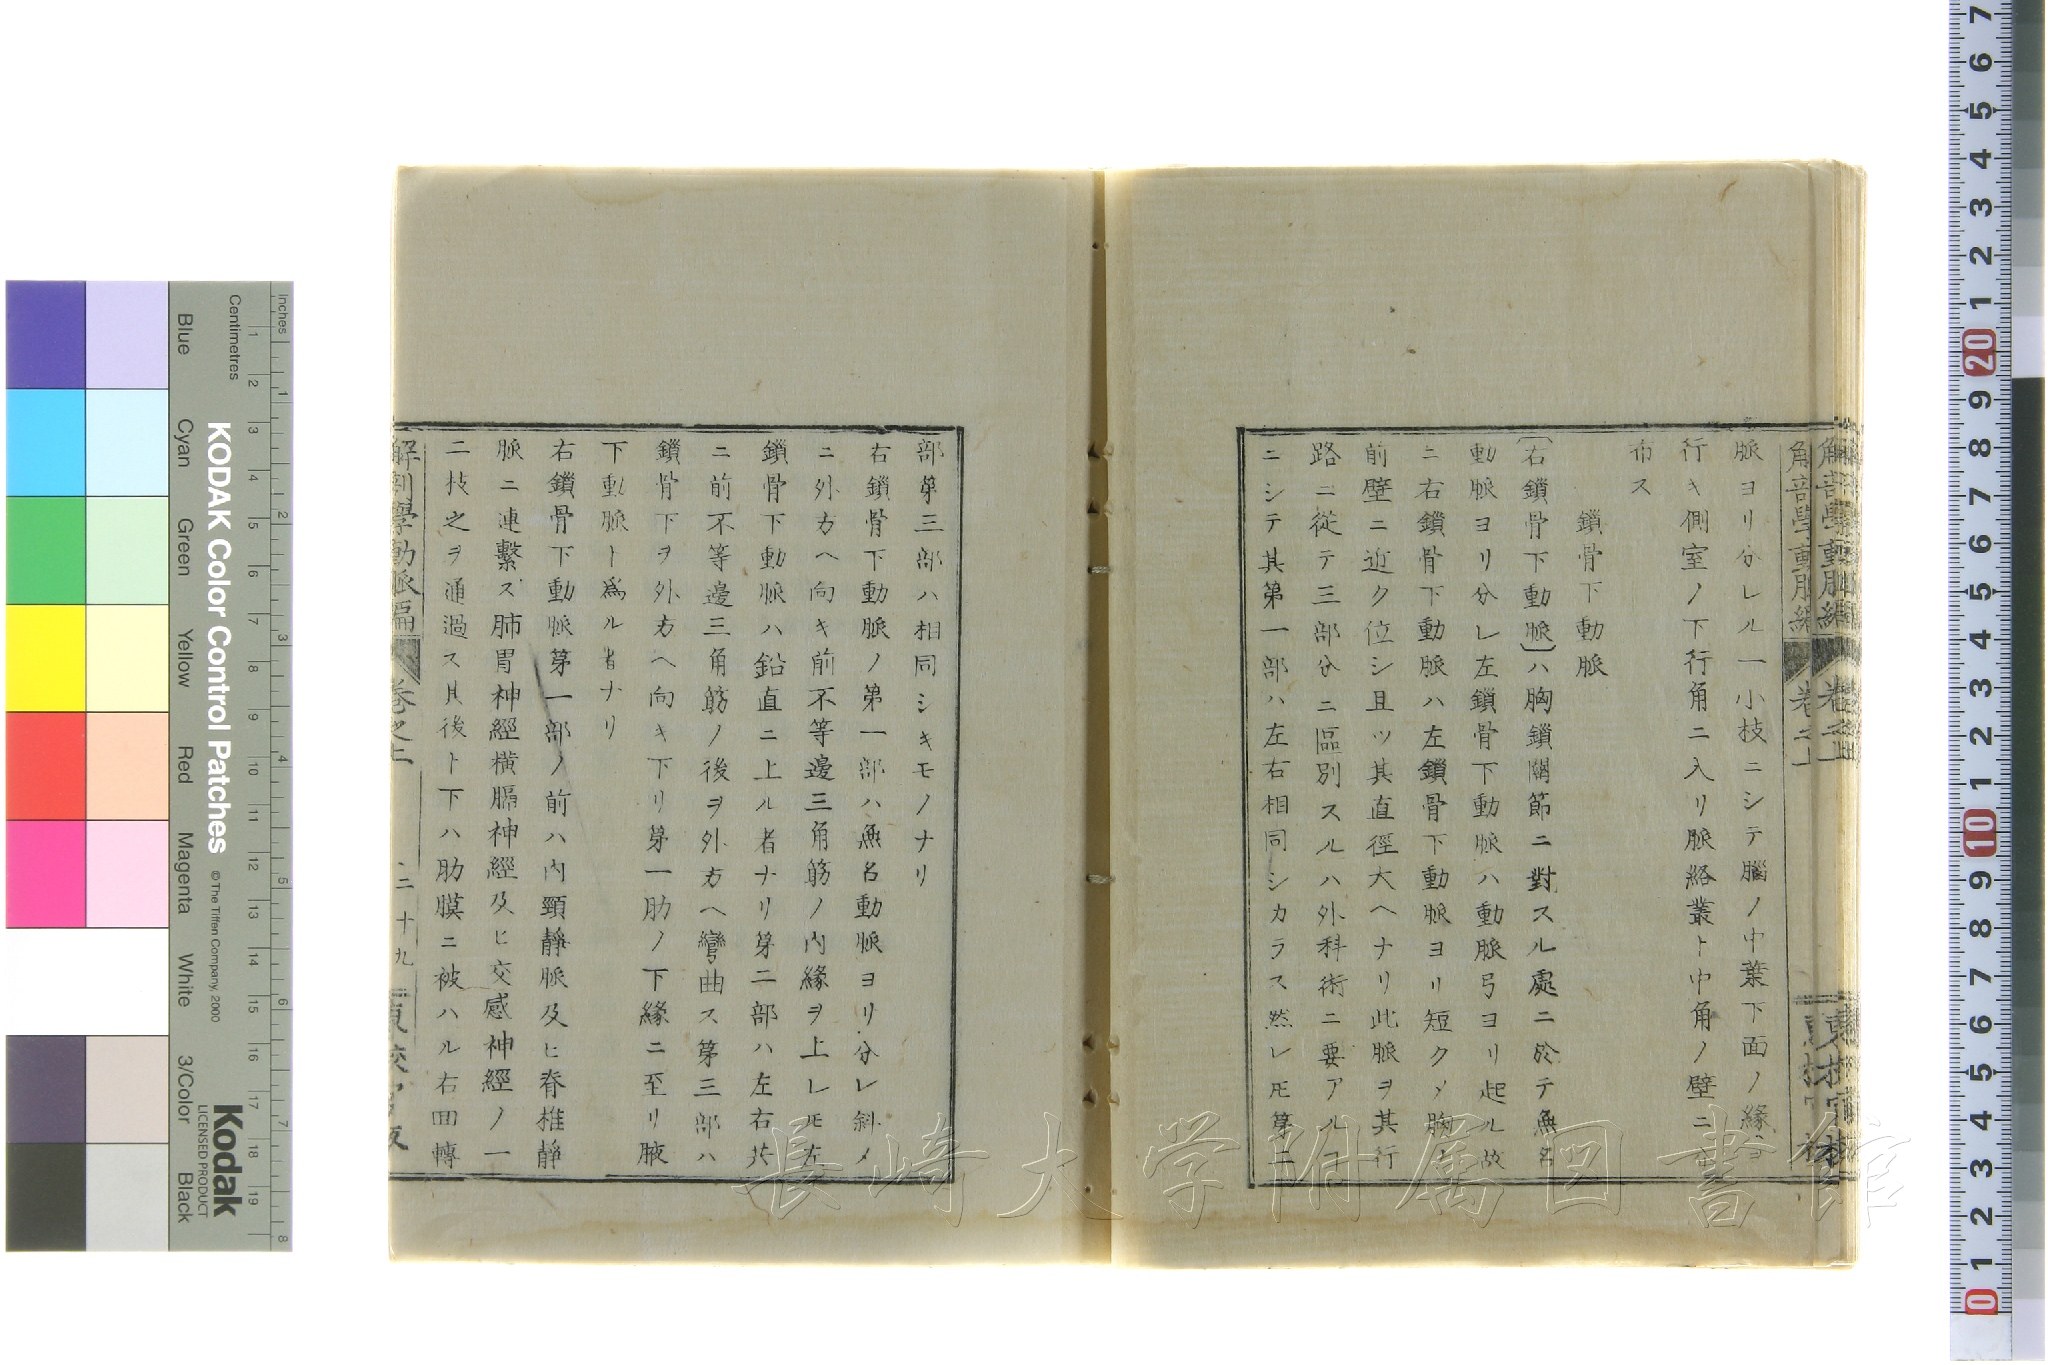 脈ヨリ分レル一小枝ニシテ腦ノ中葉下面ノ縁ヲ
行キ側室ノ下行角ニ入リ脈絡叢ト中角ノ壁ニ
布ス
鎖骨下動脈
〔右鎖骨下動脈〕ハ胸鎖關節ニ對スル處ニ於テ無名
動脈ヨリ分レ左鎖骨下動脈ハ動脈弓ヨリ起ル故
ニ右鎖骨下動脈ハ左鎖骨下動脈ヨリ短クメ胸
前壁ニ近ク位シ且ツ其直徑大ヘナリ此脈ヲ其行
路ニ從テ三部分ニ區別スルハ外科術ニ要アル
ニシテ其第一部ハ左右相同シカラス然レ𪜈第二
部第三部ハ相同シキモノナリ
右鎖骨下動脈ノ第一部ハ無名動脈ヨリ分レ斜メ
ニ外方ヘ向キ前不等邊三角筋ノ内縁ヲ上レ𪜈左
鎖骨下動脈ハ鉛直ニ上ル者ナリ第二部ハ左右共
ニ前不等邊三角筋ノ後ヲ外方ヘ彎曲ス第三部ハ
鎖骨下ヲ外方ヘ向キ下リ第一肋ノ下縁ニ至リ腋
下動脈ト爲ル者ナリ
右鎖骨下動脈第一部ノ前ハ内頸靜脈及ヒ脊椎靜
脈ニ連繫ス肺胃神經橫膈神經及ヒ交感神經ノ一
二枝之ヲ通過ス其後ト下ハ肋膜ニ被ハル右回轉
解剖學動脈編 卷之上 二十九
長崎大学附属図書館
KODAK Color Control Patches
© The Tiffen Company, 2000
Kodak
LICENSED PRODUCT
Inches
Centimetres
Blue
Cyan
Green
Yellow
Red
Magenta
White
3/Color
Black